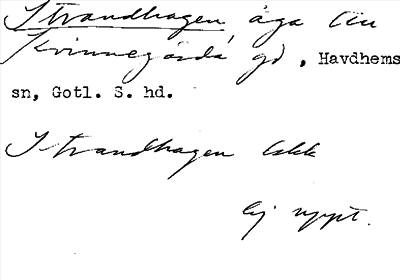 Strandhagen, äga till
Kvinnegårda gd, Havdhems
sn, Gotl. S. hd.
Strandhagen
Ej nypt.